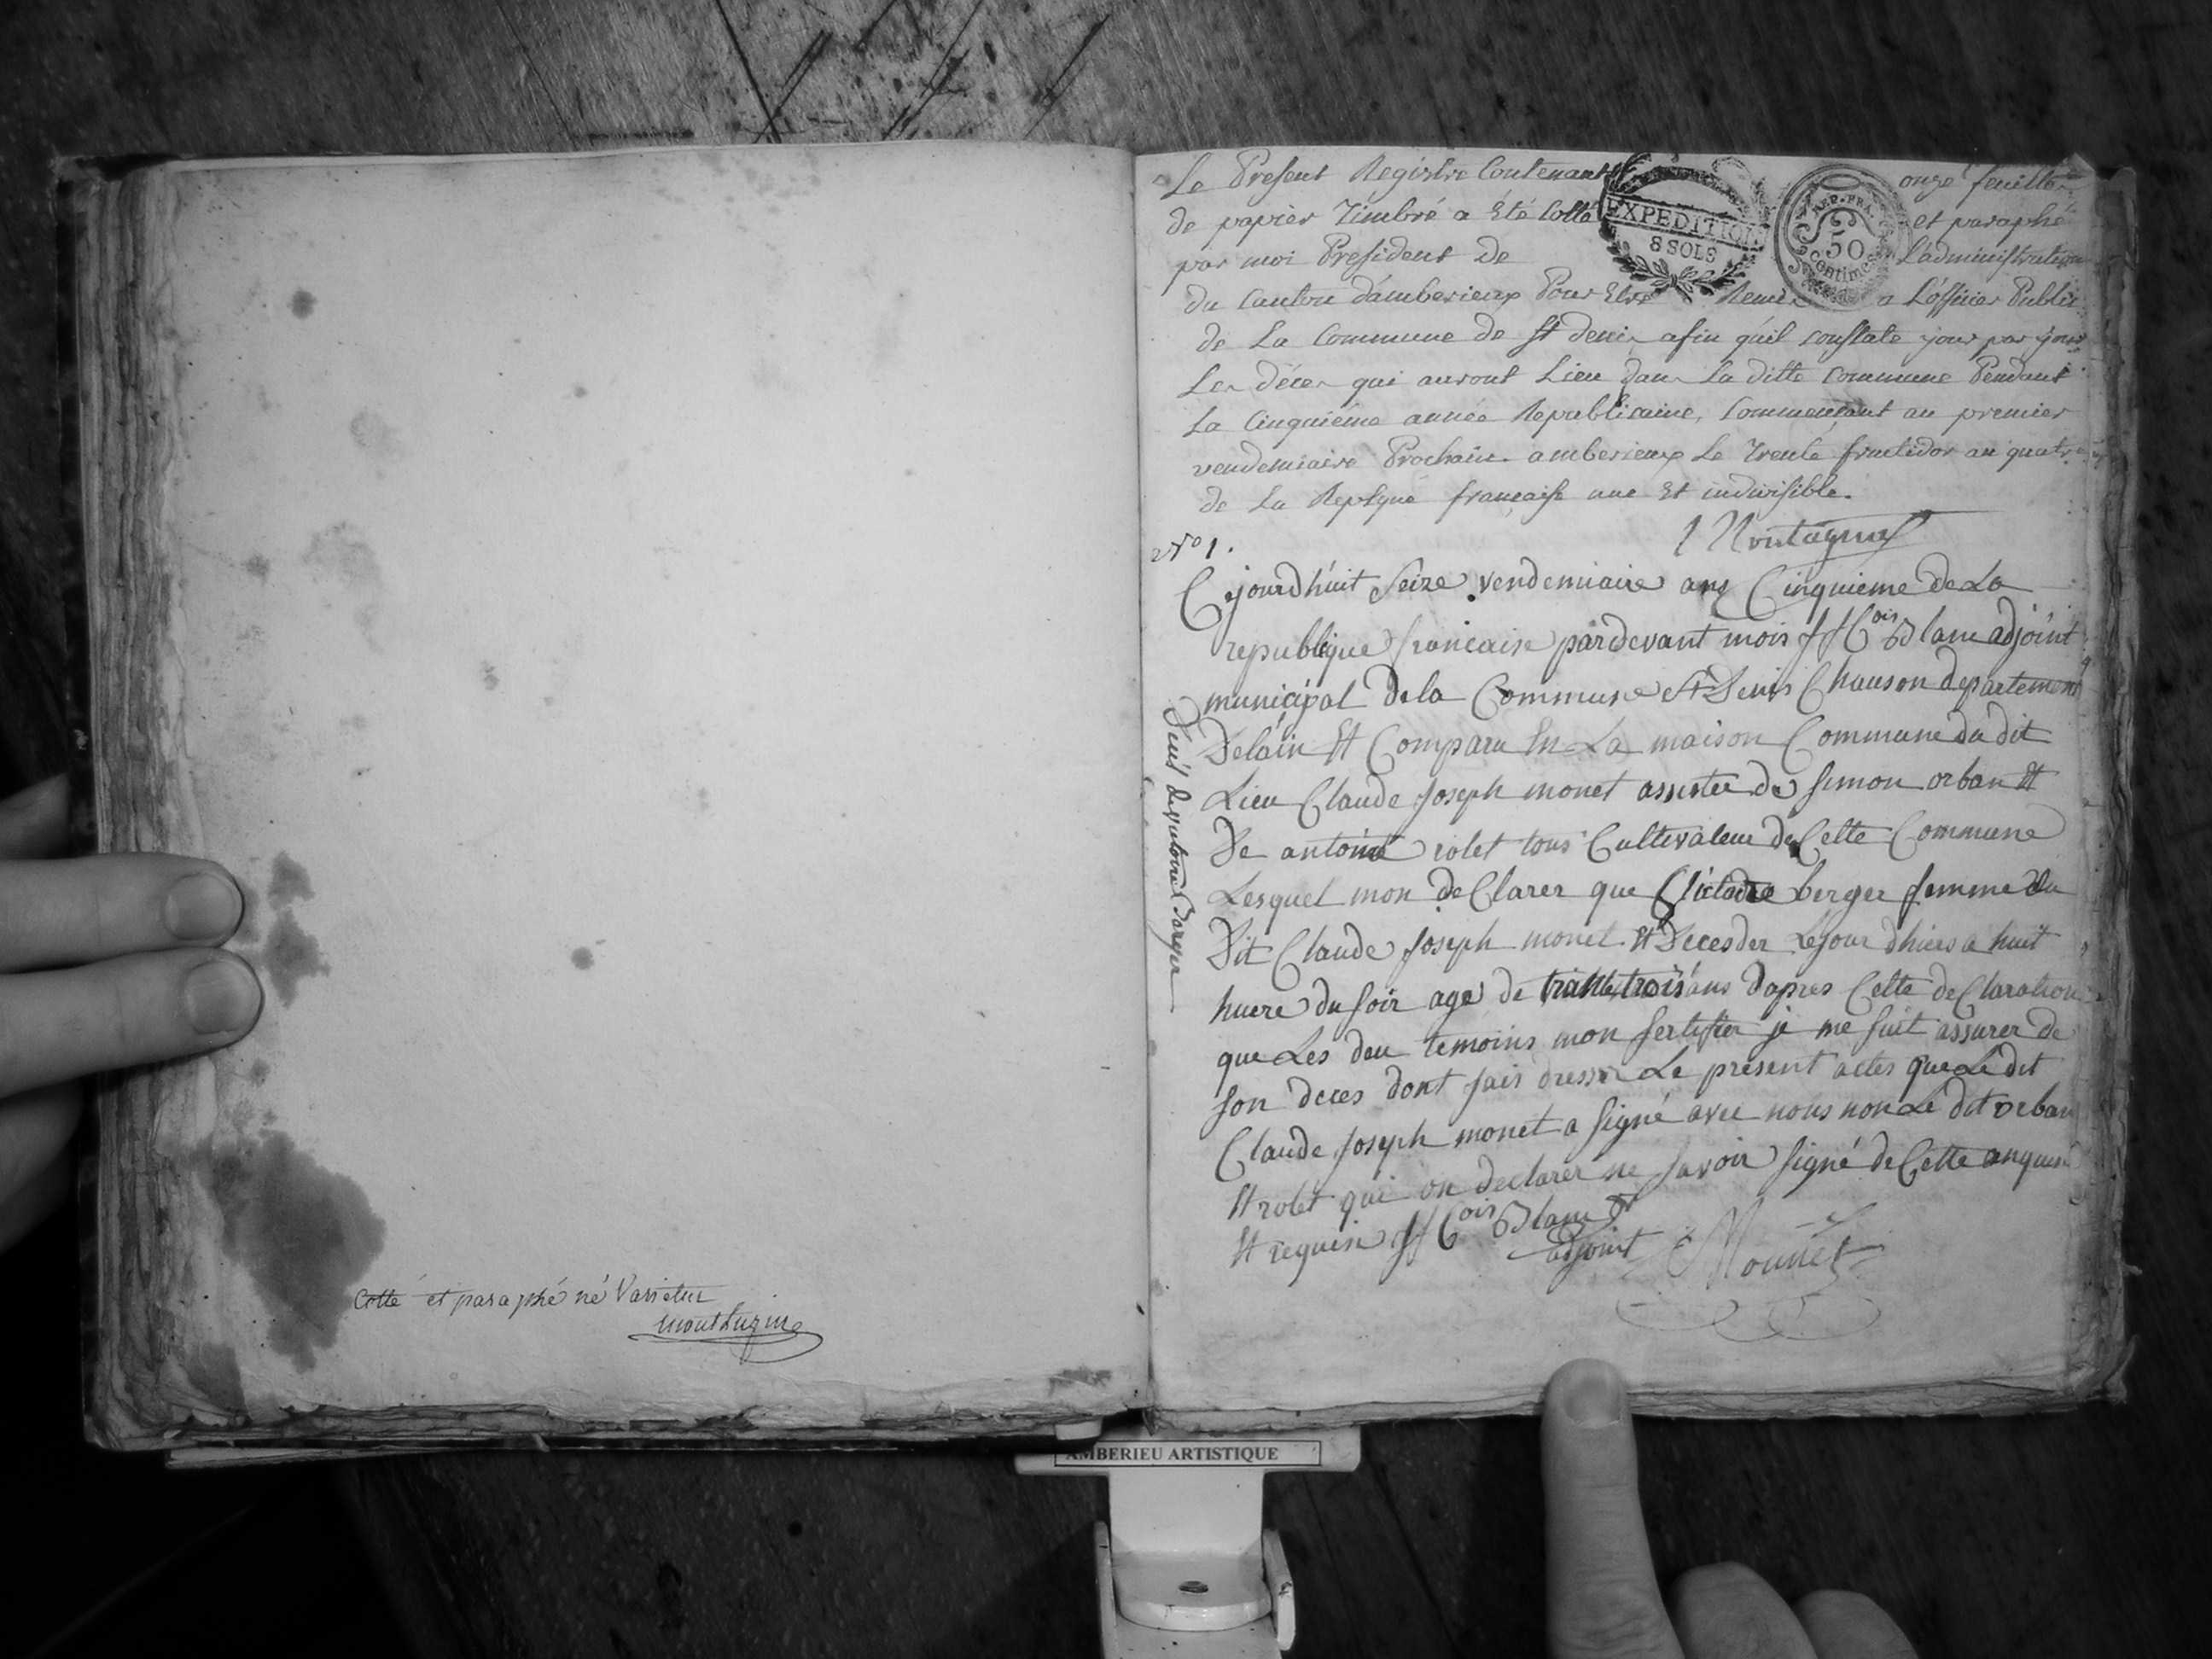 cotté et paraphé né Varietur
montluzin
Le Present Registre Contenant onze feuilles
de papier Timbré a Eté Cotté et paraphé
par moi President de L'administration
du Canton d'amberieux Pour Etre Remis a L'officier Public
de La Commune de St denis afin qu'il constate jour par jour
Les décés qui auront Lieu dans La ditte Commune Pendant
La Cinquiéme année Republicaine, Commençant au premier
vendemiaire Prochain. amberieux Le Trente fructidor an quatre
de La Repbque française une Et indivisible.
EXPEDITION
8 SOLS
REP. FRA.
50
Centimes
Montagnat
No 1.
Cejourdhuit Seize vendemiaire ans Cinquieme de La
republique francaise pardevant mois JFCois Blanc adjoint
municipal de la Commune St Denis Chauson departement
Delain Et Comparu En La maison Commune du dit
Lieu Claude Joseph monet assister de simon orban Et
De antoine rolet tous Cultivateur de Cette Commune
Lesquel mon deClarer que berger femme du
Dit Claude Joseph monet Et Deceder Le Jour dhiers a huit
huere du soir age de trante trois ans dapres Cette deClaration
que Les deu temoins mon sertifier je me suit assurer de
son deces dont jais dresser Le present actes que Le dit
Claude Joseph monet a signé avec nous non Le dit orban
Et rolet qui on declarer ne savoir signé de Cette anquis
Et requise JFCois Blanc
adjoint Monnet